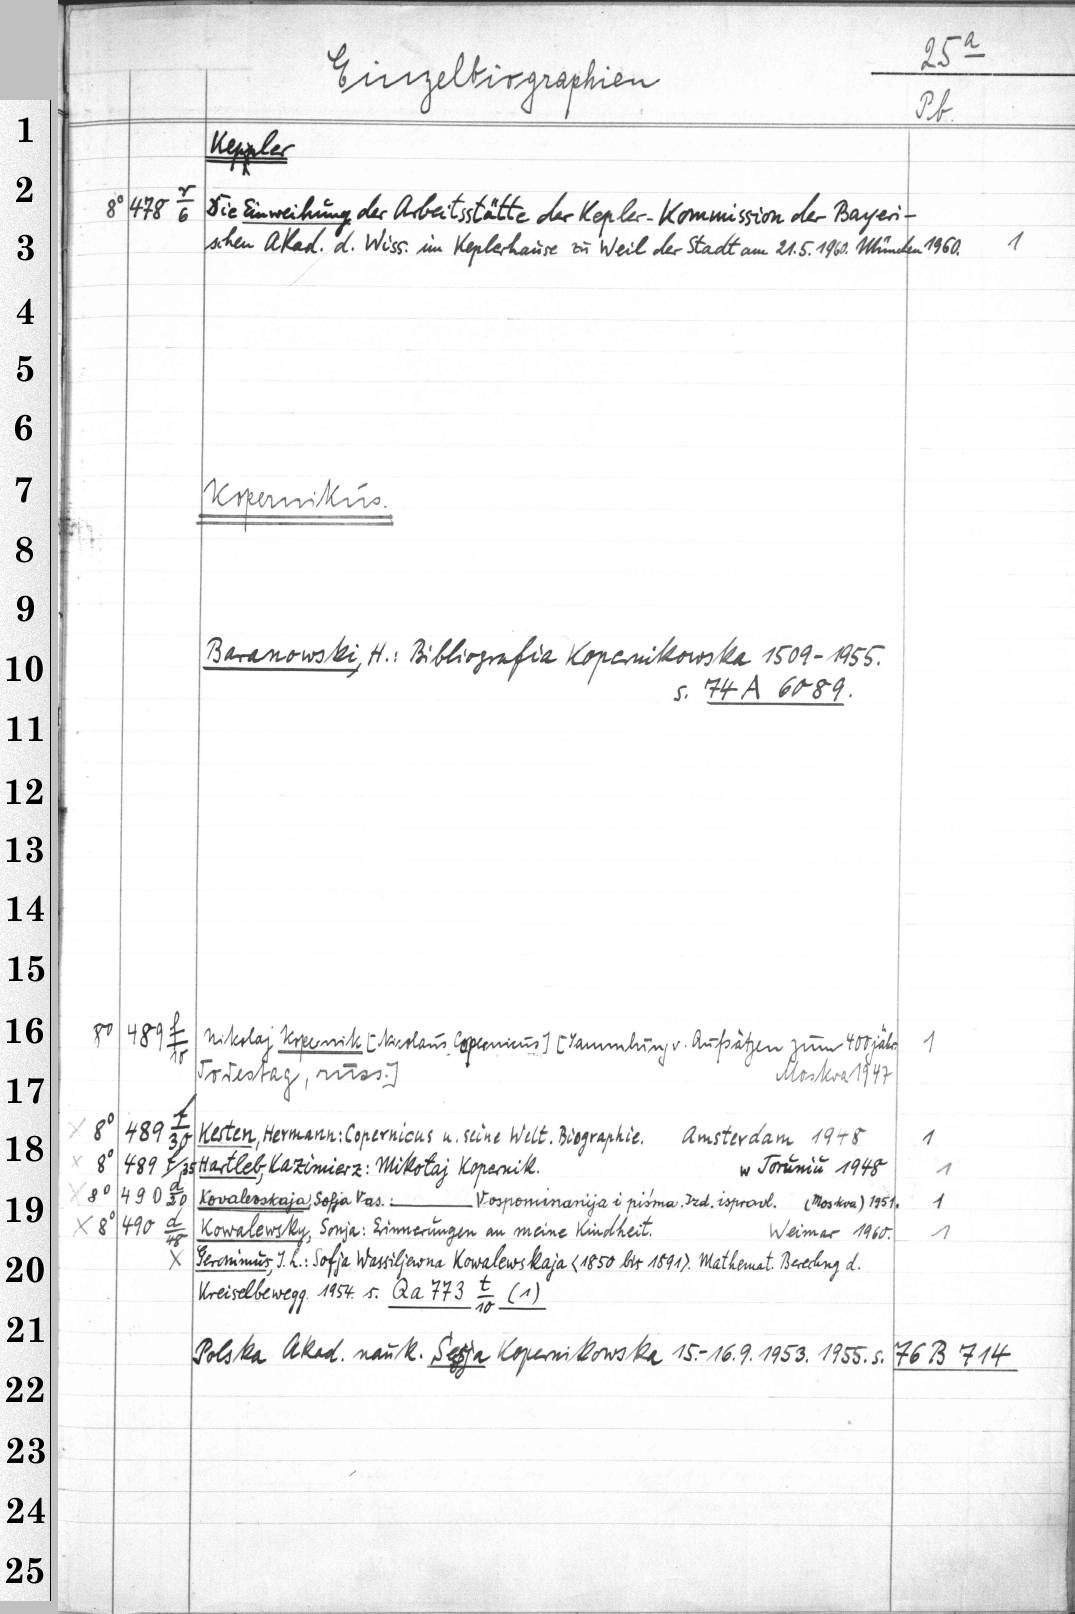 Einzelbiographien 25a
Pb.
1
Keppler
2 8° 478 r/6 Die Einweihung der Arbeitsstätte der Kepler-Kommission der Bayeri-
3 schen Akad. d. Wiss. im Keplerhause zu Weil der Stadt am 21.5.1960. München 1960. 1
4
5
6
7 Kopernikus.
8
9
10 Baranowski, H.: Bibliografia Kopernikowska 1509-1955.
s. 74 A 6089.
11
12
13
14
15
16 8° 489 f/15 Nikolaj Kopernik [Nicolaus Copernicus] [Sammlung v. Aufsätzen zum 400jähr. 1
17 Todestag, russ.] Moskva 1947
18 x 8° 489 f/30 Kesten, Hermann: Copernicus u. seine Welt. Biographie. Amsterdam 1948 1
x 8° 489 f/35 Hartleb, Kazimierz: Mikołaj Kopernik. w Toruniu 1948 1
19 x 8° 490 d/30 Kovalevskaja, Sofja Vas.: Vospominanija i piśma. Izd. ispravl. (Moskva) 1951. 1
x 8° 490 d/48 Kowalewsky, Sonja: Erinnerungen an meine Kindheit. Weimar 1960. 1
20 x Geronimus, J. L.: Sofja Wassiljewna Kowalewskaja <1850 bis 1891>. Mathemat. Berechng d.
Kreiselbewegg. 1954. s. Qa 773 t/10 (1)
21 Polska Akad. nauk. Sesja Kopernikowska 15.-16.9.1953. 1955. s. 76 B 714
22
23
24
25